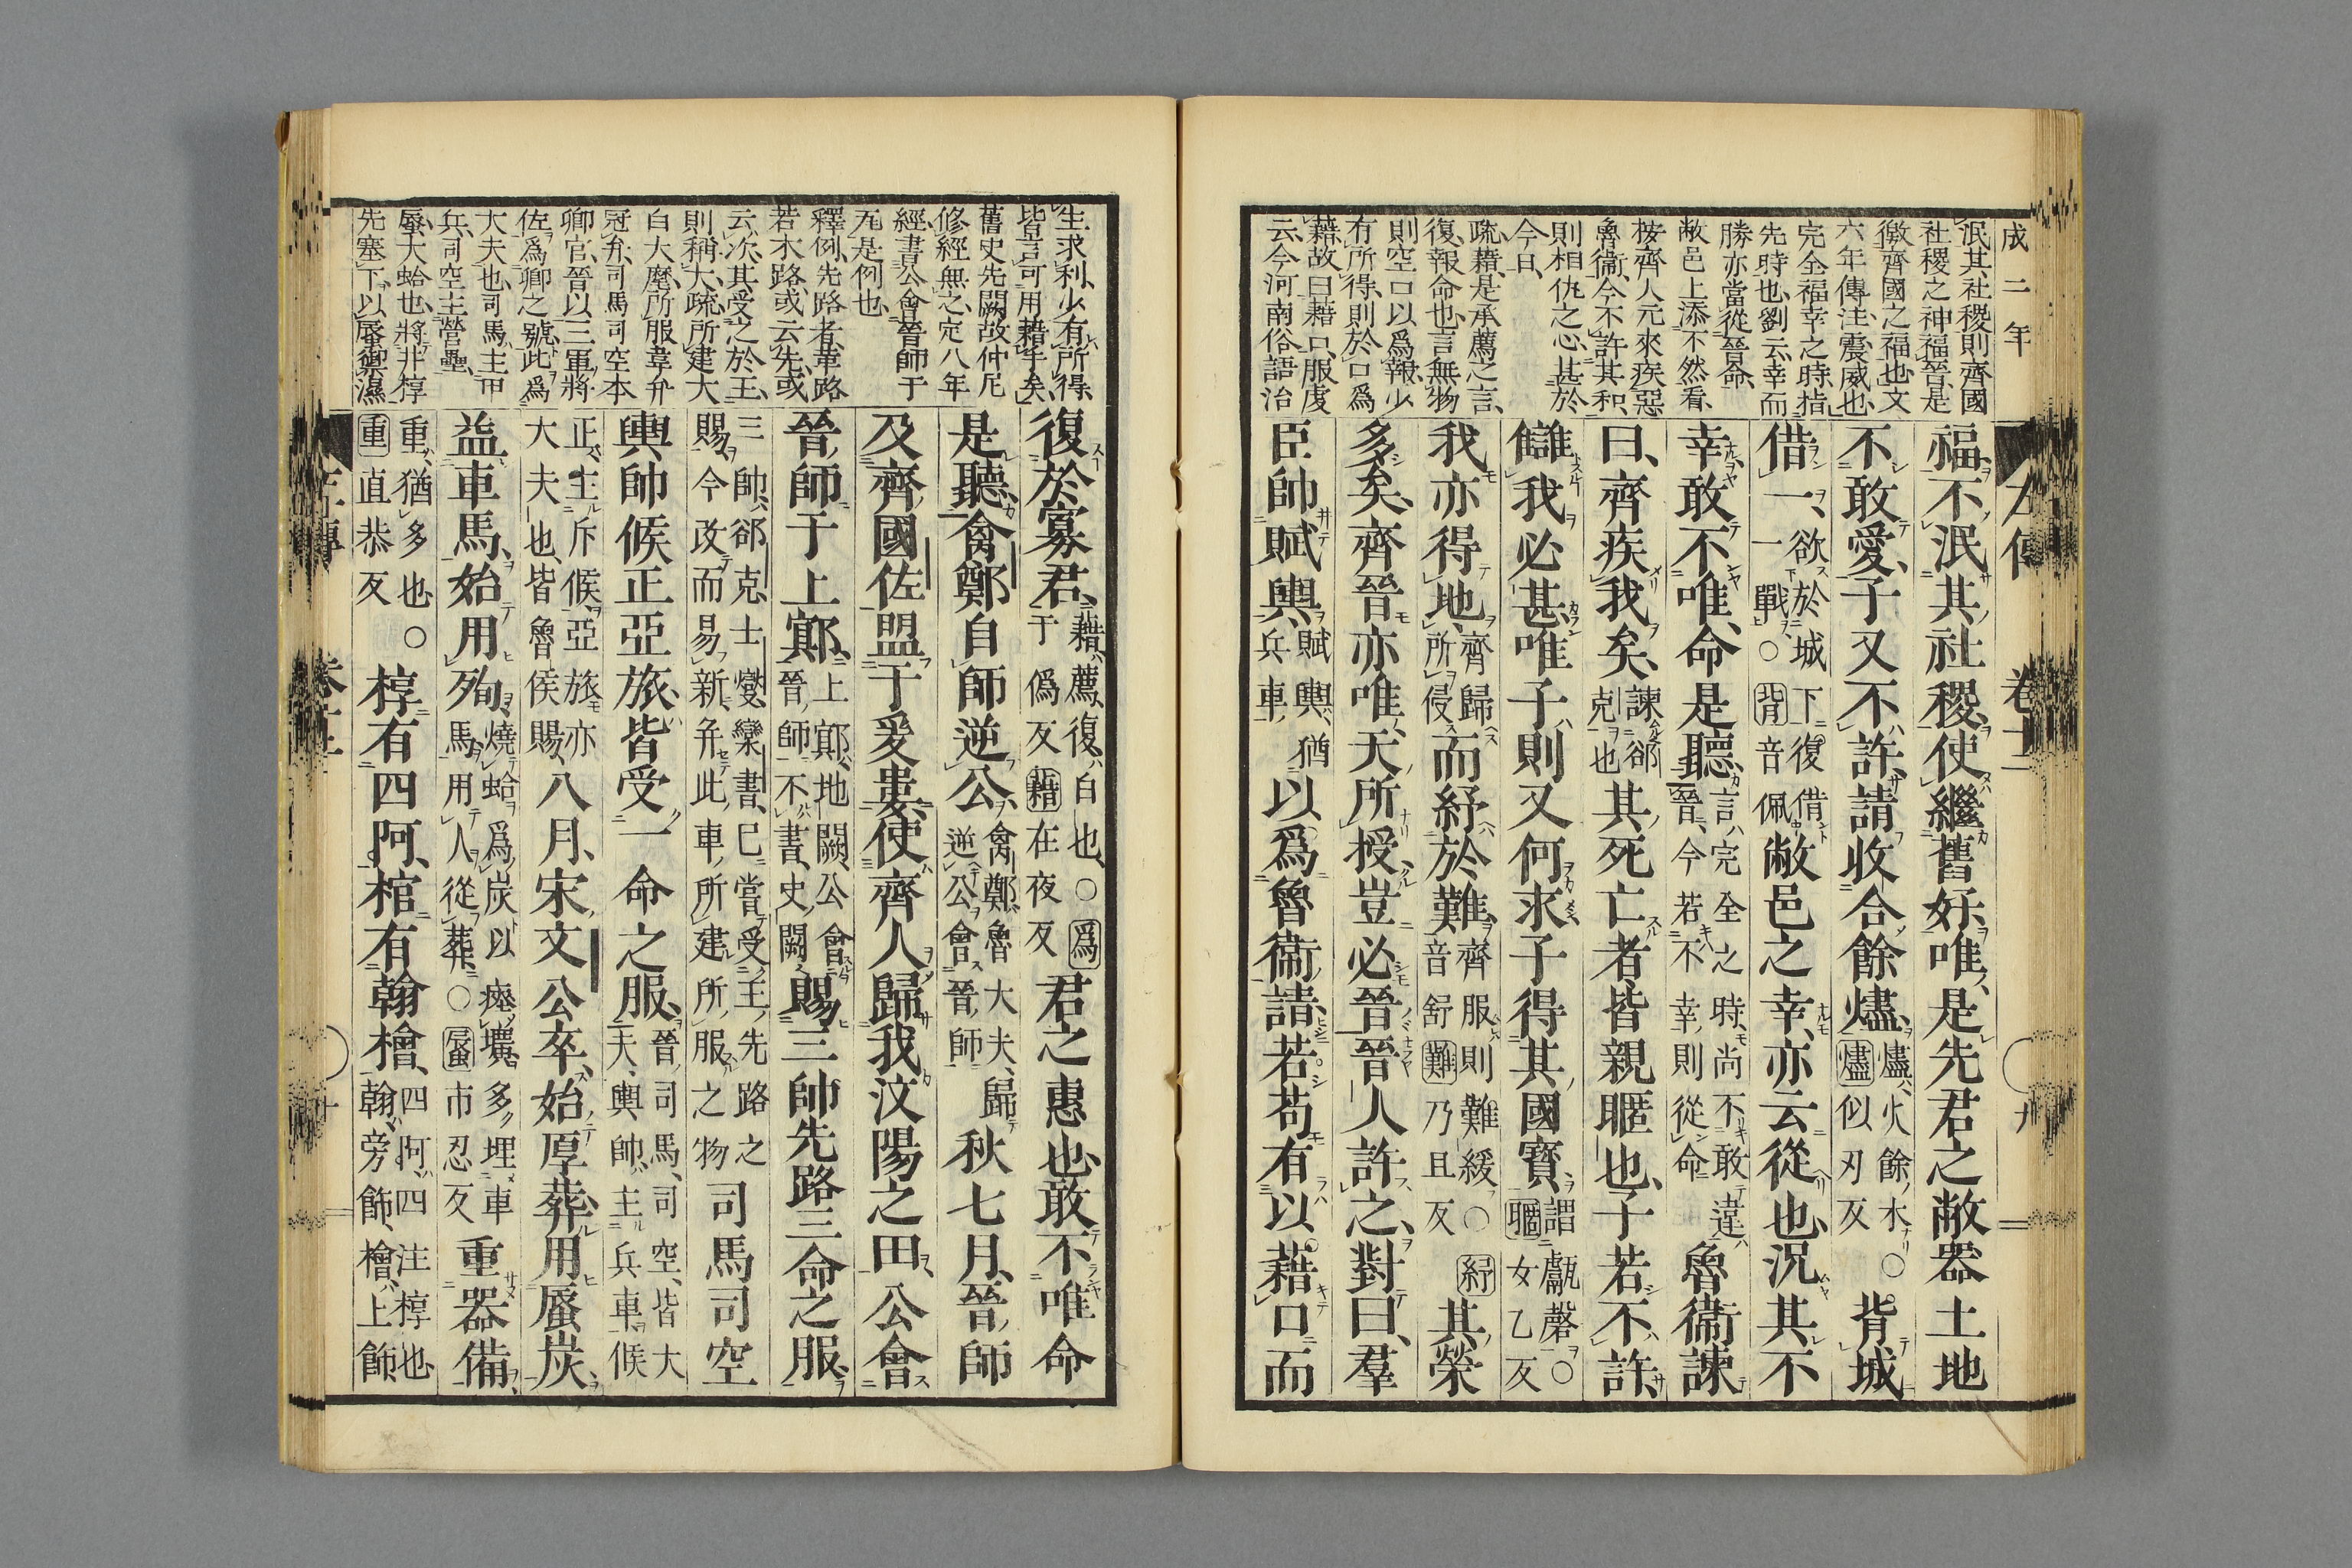 成二年
泯其社稷則齊國
社稷之神福晉是
徼齊國之福也文
六年傳注震威也
完全福幸之時指
先時也劉云幸而
勝亦當從晉命
敝邑上添不然看
按齊人元來疾惡
魯衞今不許其和
則相仇之心甚於
今日
疏藉是承薦之言
復報命也言無物
則空口以爲報少
有所得則於口爲
藉故曰藉口服虔
云今河南俗語治
左傳 卷十二 九
福不泯其社稷使繼舊好唯是先君之敝器土地
不敢愛子又不許請收合餘燼燼火餘木○燼似刃反背城
借一欲於城下復借一戰○背音佩敝邑之幸亦云從也況其不
幸敢不唯命是聽言完全之時尚不敢違晉今若不幸則從命魯衞諫
曰齊疾我矣諫郤克也其死亡者皆親暱也子若不許
讎我必甚唯子則又何求子得其國寶謂甗磬○暱女乙反
我亦得地齊歸所侵而紓於難齊服則難緩○紓音舒難乃且反其榮
多矣齊晉亦唯天所授豈必晉晉人許之對曰羣
臣帥賦輿賦輿猶兵車以爲魯衞請若苟有以藉口而
生求利少有所得
皆言可用藉手矣
舊史先闕故仲尼
修經無之定八年
經書公會晉師于
瓦是例也
釋例先路者革路
若木路或云先或
云次其受之於王
則稱大疏所建大
白大麾所服韋弁
冠弁司馬司空本
卿官晉以三軍將
佐爲卿之號此爲
大夫也司馬主甲
兵司空主營壘
蜃大蛤也將井椁
先塞下以蜃禦濕
復於寡君藉薦復白也○爲于僞反藉在夜反君之惠也敢不唯命
是聽禽鄭自師逆公禽鄭魯大夫歸逆公會晉師秋七月晉師
及齊國佐盟于爰婁使齊人歸我汶陽之田公會
晉師于上鄍上鄍地闕公會晉師不書史闕賜三帥先路三命之服
三帥郤克士燮欒書已嘗受王先路之賜今改而易新并此車所建所服之物司馬司空
輿帥候正亞旅皆受一命之服晉司馬司空皆大夫輿帥主兵車候
正主斥候亞旅亦大夫也皆魯侯賜八月宋文公卒始厚葬用蜃炭
益車馬始用殉燒蛤爲炭以瘞壙多埋車馬用人從葬○蜃市忍反重器備
重猶多也○重直恭反椁有四阿棺有翰檜四阿四注椁也翰旁飾檜上飾
左傳 卷十二 十